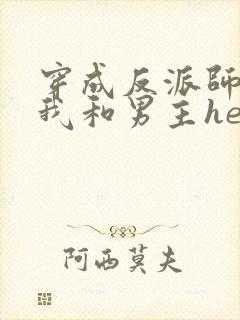 穿成反派師
我和男主he
阿西莫夫